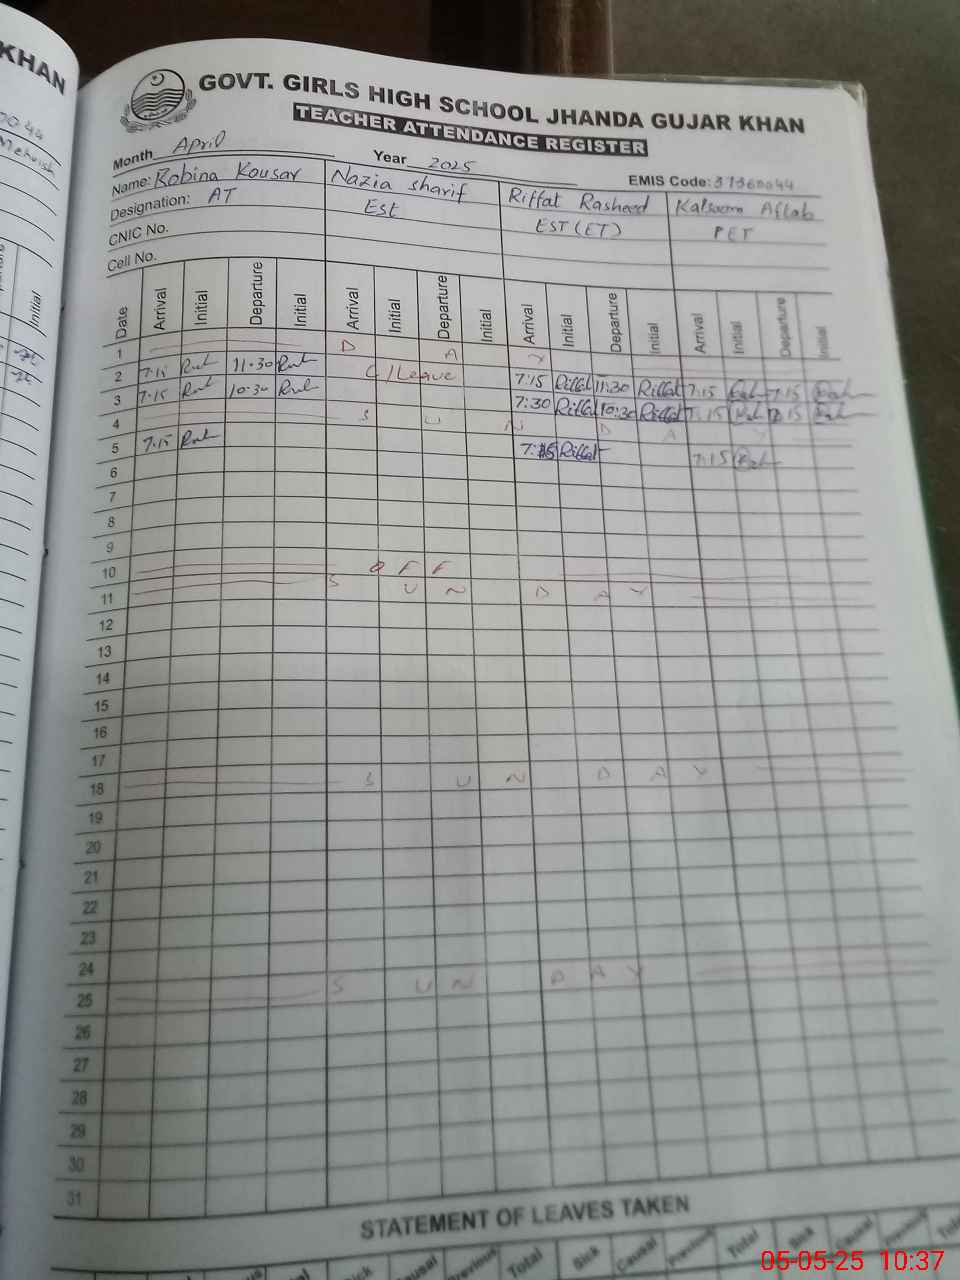 KHAN
GOVT. GIRLS HIGH SCHOOL JHANDA GUJAR KHAN
TEACHER ATTENDANCE REGISTER
Month April Year 2025 EMIS Code:
Name: Robina Kousar Nazia sharif Riffat Rasheed Kalsoom Aftab
Designation: AT Est EST (ET) PET
CNIC No.
Cell No.
Date Arrival Initial Departure Initial Arrival Initial Departure Initial Arrival Initial Departure Initial Arrival Initial Departure Initial
Initial
1 D A Y
2 7.15 11.30 C/Leave 7:15 Riffat 11:30 Riffat 7:15 7:15
3 7.15 10:30 7:30 Riffat 10:30 Riffat
4 S U N D A Y
5 7.15 Riffat 7:15
6
7
8
9
10 OFF
11 S U N D A Y
12
13
14
15
16
17
18 S U N D A Y
19
20
21
22
23
24
25 S U N D A Y
26
27
28
29
30
31
STATEMENT OF LEAVES TAKEN
Sick Causal Previous Total Sick Causal Previous Total Sick Causal Previous Total
05-05-25 10:37